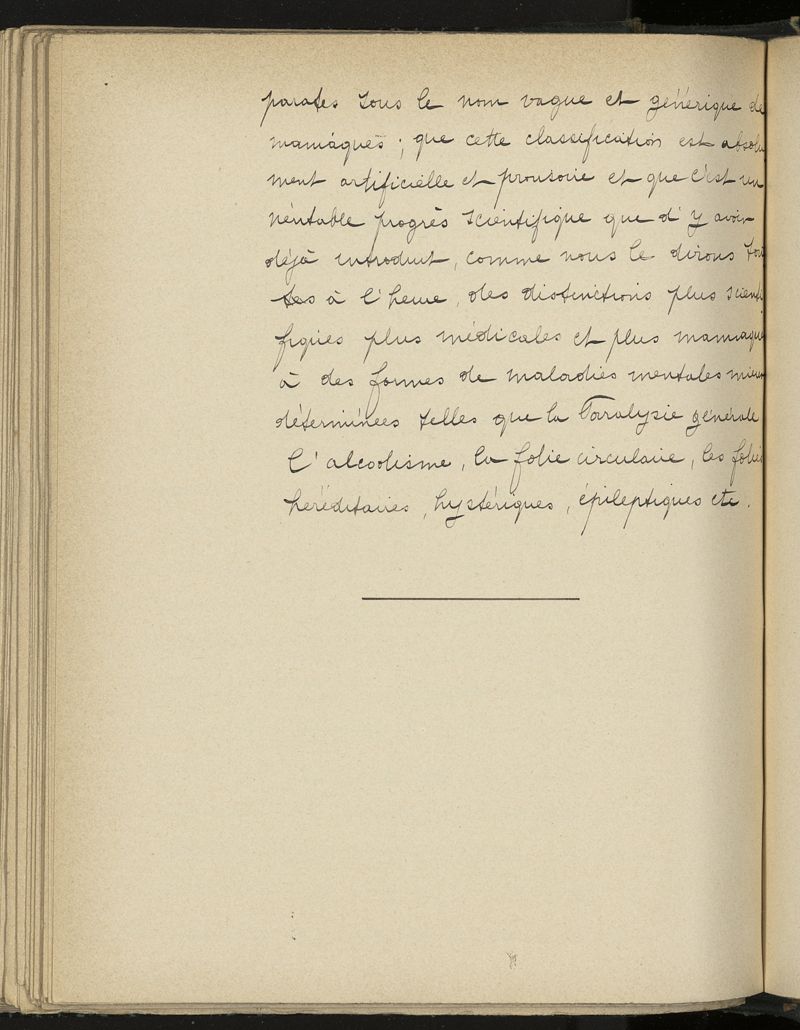 parates sous le nom vague et générique de
maniaques ; que cette classification est absolu
ment artificielle et provisoire et que c'est un
véritable progrès scientifique que d'y avoir
déjà introduit, comme nous le dirons tou
tes à l'heure, des distinctions plus scienti
fiques plus médicales et plus
à des formes de maladies mentales mieux
déterminées telles que la Paralysie générale
l'alcoolisme, la folie circulaire, les folies
héréditaires, hystériques, épileptiques etc.